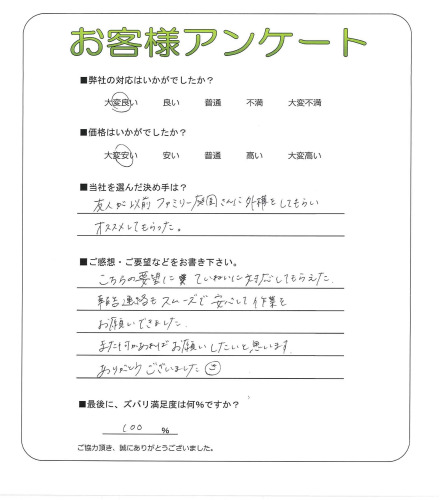 お客様アンケート
■弊社の対応はいかがでしたか？
大変良い 良い 普通 不満 大変不満
■価格はいかがでしたか？
大変安い 安い 普通 高い 大変高い
■当社を選んだ決め手は？
友人が以前ファミリー庭園さんに外構をしてもらい
オススメしてもらった。
■ご感想・ご要望などをお書き下さい。
こちらの要望に ていねいに対応してもらえた。
報告連絡もスムーズで安心して作業を
お願いできました。
また何かあればお願いしたいと思います。
ありがとうございました
■最後に、ズバリ満足度は何％ですか？
100 ％
ご協力頂き、誠にありがとうございました。